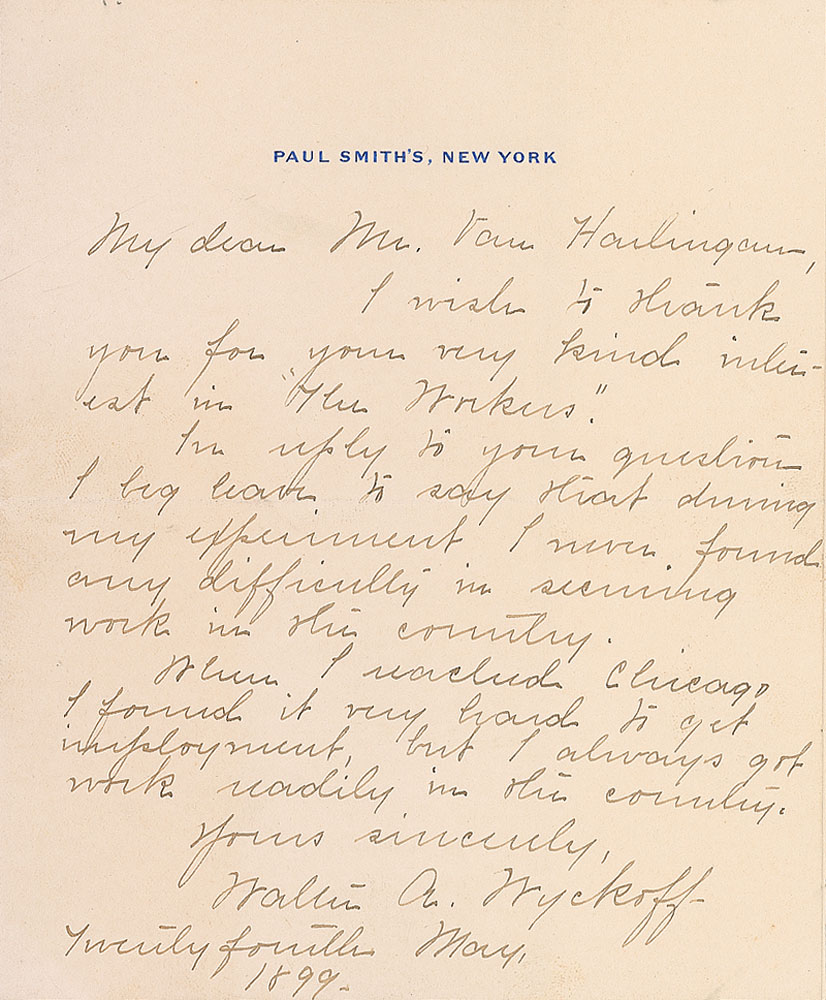 PAUL SMITH'S, NEW YORK
My dear Mr. Van Harlingen,
I wish to thank
you for your very kind inter-
est in "The Workers".
In reply to your question
I beg leave to say that during
my experiment I never found
any difficulty in securing
work in the country.
When I reached Chicago
I found it very hard to get
employment, but I always got
work readily in the country.
Yours sincerely,
Walter A. Wyckoff-
Twenty fourth May,
1899.